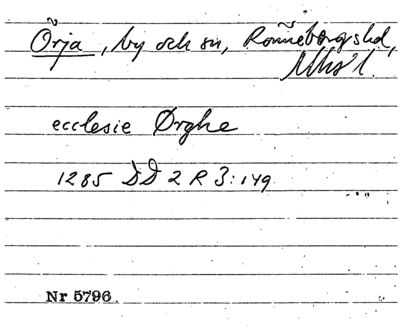 Örja, by och sn, Rönnebärgs hd,
Mhs l.
ecclesie Ørghe
1285 DD 2 R 3:149
Nr 5796.